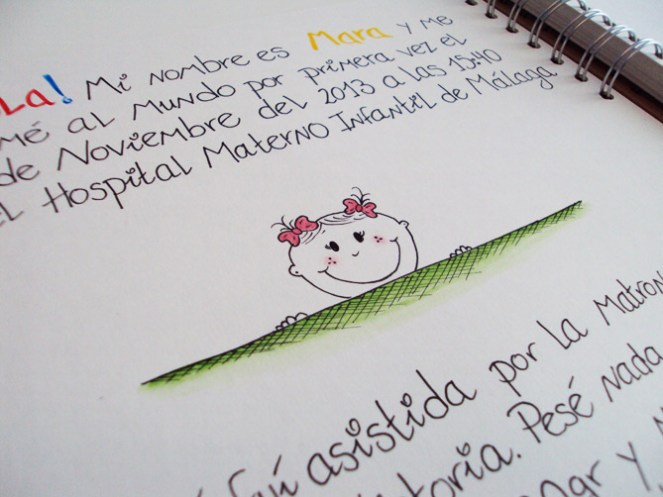 La! Mi nombre es Mara y me
mé al mundo por primera vez el
de Noviembre del 2013 a las 15:40
el Hospital Materno Infantil de Málaga
asistida por la Matron
toria. Pesé nada
Mar y